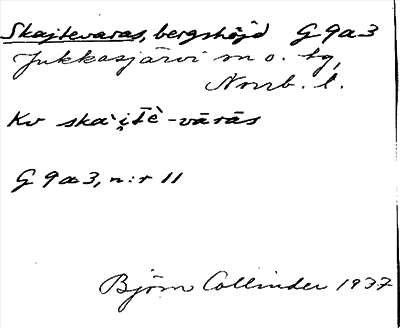 Skajtevaras, bergshöjd G 9a3
Jukkasjärvi sn o. tg,
Norrb. l.
Kv ska'i̯tè-vārās
G 9a3, n:r 11
Björn Collinder 1937